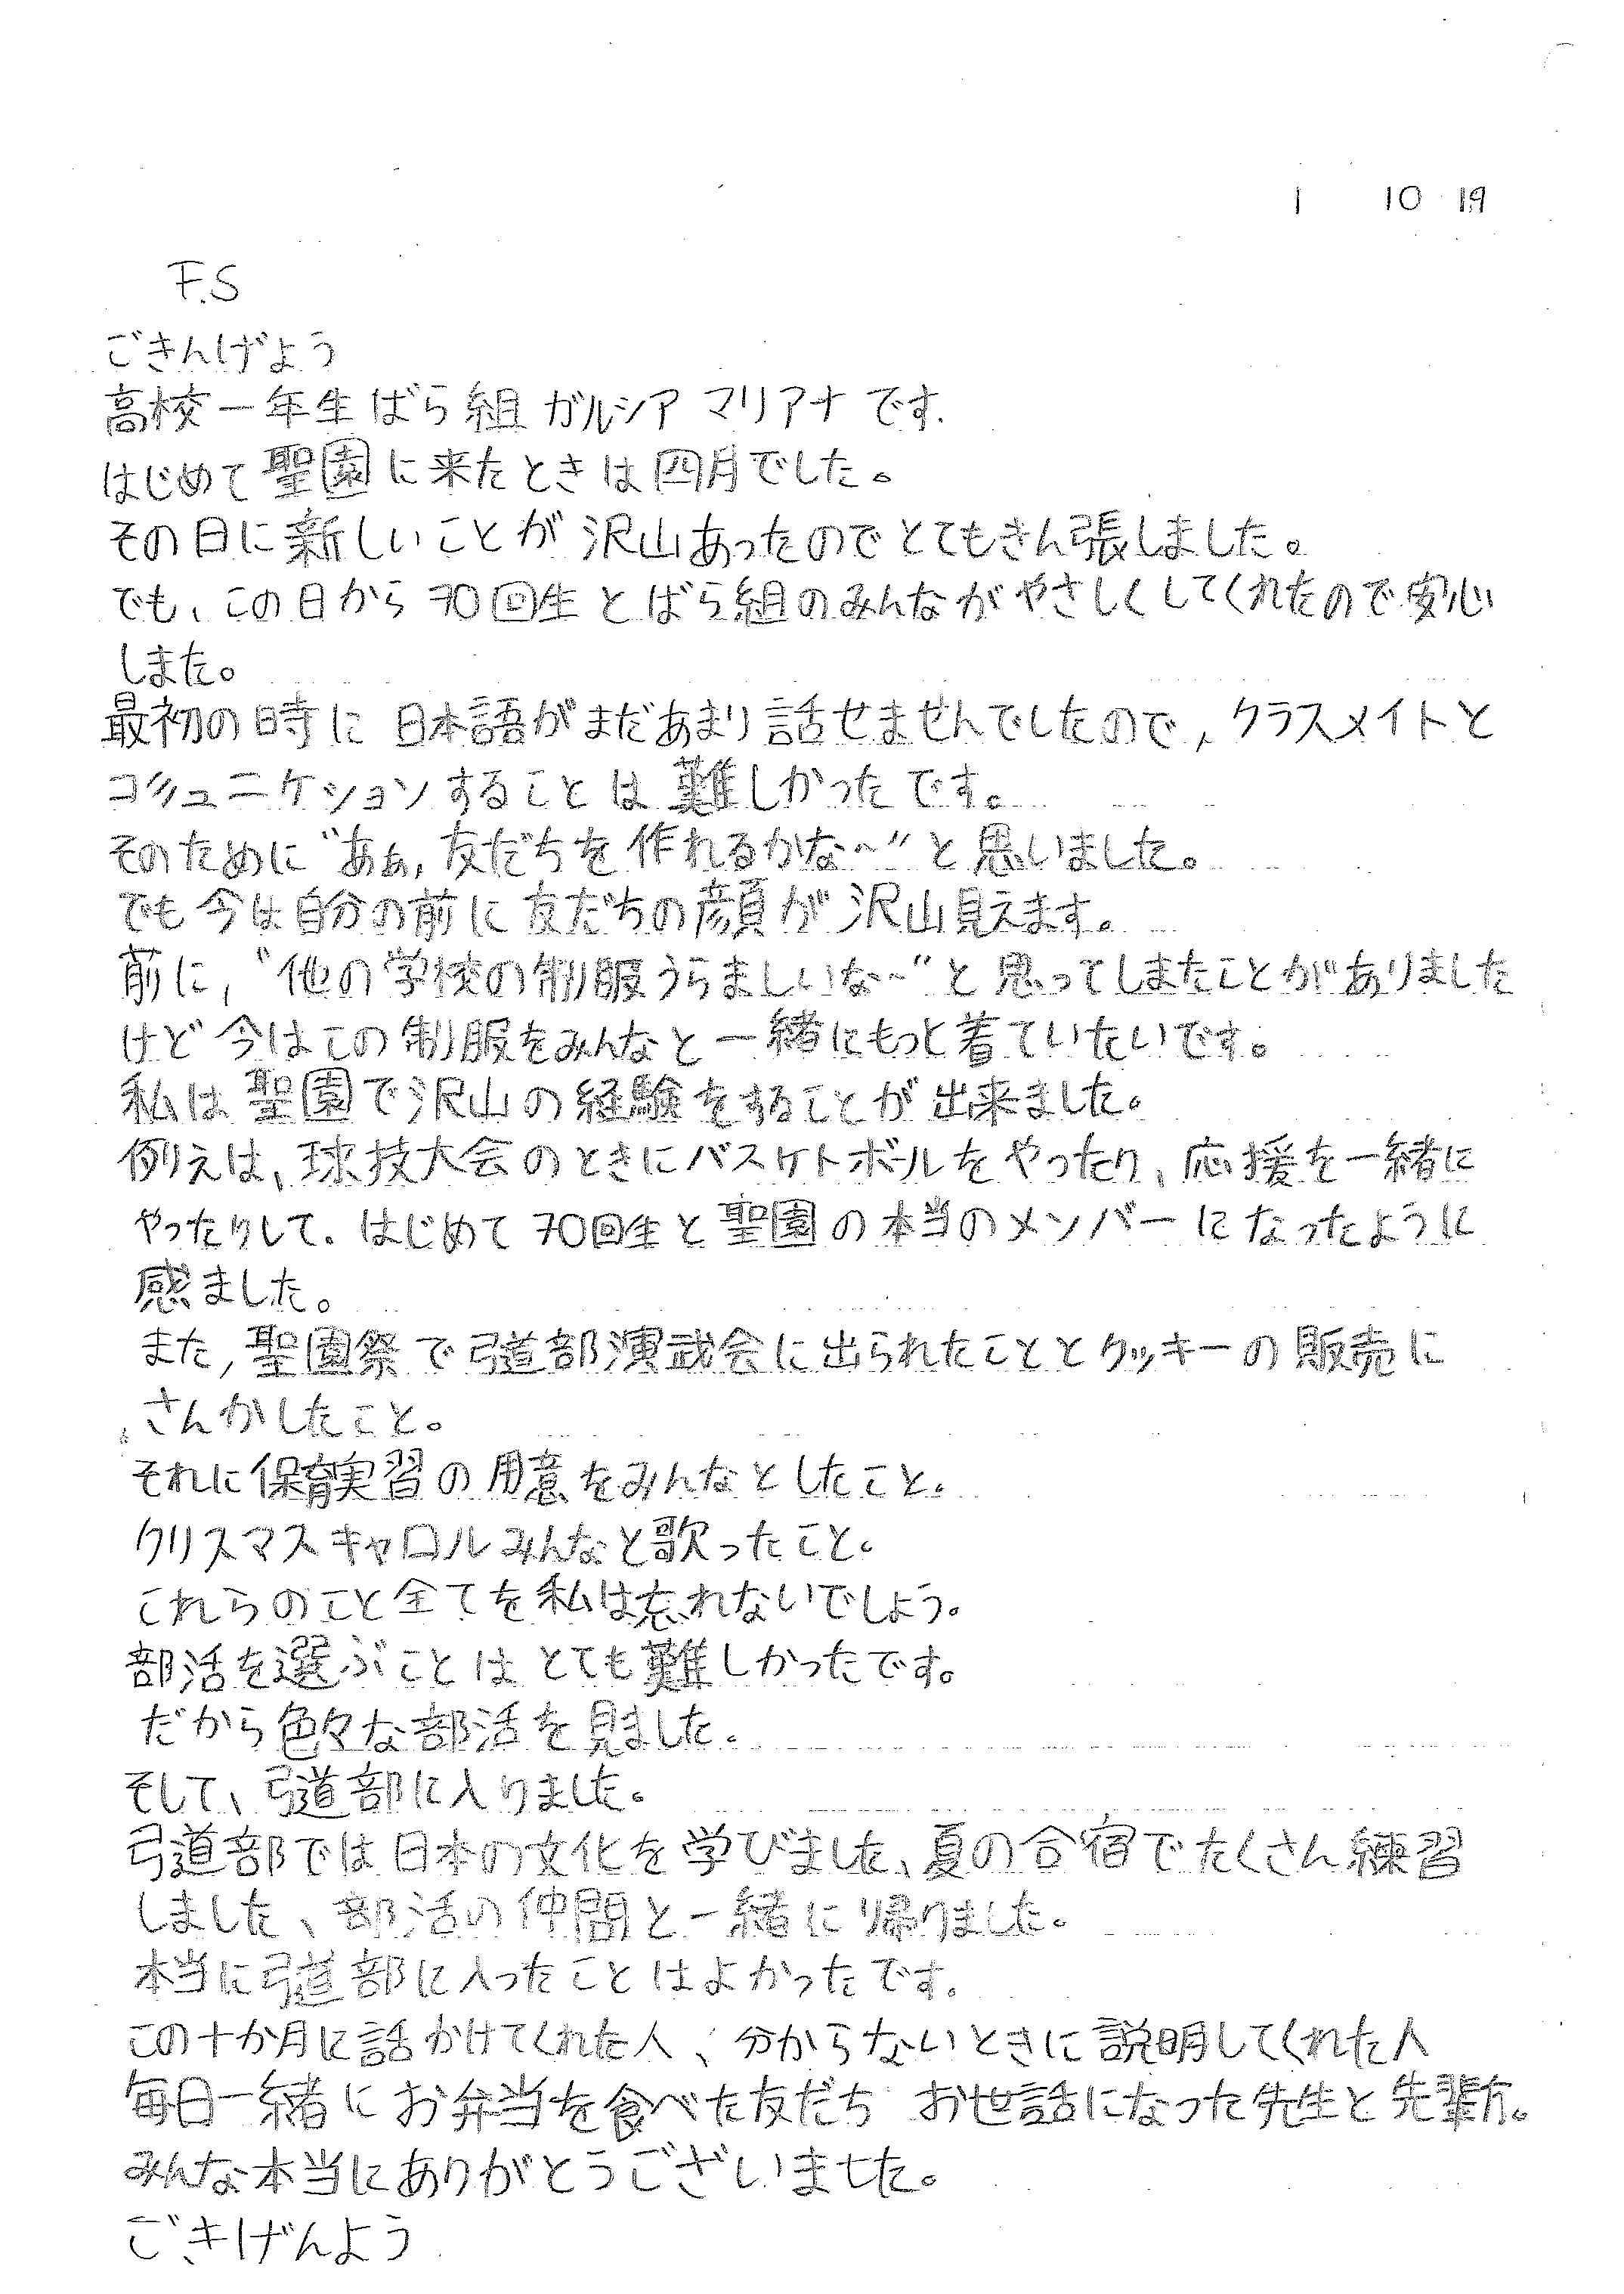 1 10 19
F.S
ごきんげよう
高校一年生ばら組 ガルシア マリアナです.
はじめて聖園に来たときは四月でした。
その日に新しいことが沢山あったのでとてもきん張しました。
でも、この日から70回生とばら組のみんながやさしくしてくれたので安心
しまた。
最初の時に日本語がまだあまり話せませんでしたので, クラスメイトと
コミュニケションすることは難しかったです。
そのために"あぁ, 友だちを作れるかな〜"と思いました。
でも今は自分の前に友だちの顔が沢山見えます。
前に, "他の学校の制服うらましいな〜"と思ってしまたことがありました
けど今はこの制服をみんなと一緒にもっと着ていたいです。
私は聖園で沢山の経験をすることが出来ました。
例えは、球技大会のときにバスケトボールをやったり、応援を一緒に
やったりして. はじめて70回生と聖園の本当のメンバーになったように
感ました。
また, 聖園祭で弓道部演武会に出られたこととクッキーの販売に
さんかしたこと。
それに保育実習の用意をみんなとしたこと.
クリスマスキャロルみんなと歌ったこと。
これらのこと全てを私は忘れないでしょう。
部活を選ぶことはとても難しかったです。
だから色々な部活を見ました.
そして、弓道部に入りました。
弓道部では日本の文化を学びました、夏の合宿でたくさん練習
しました、部活の仲間と一緒に帰りました。
本当に弓道部に入ったことはよかったです.
この十か月に話かけてくれた人、分からないときに説明してくれた人
毎日一緒にお弁当を食べた友だち お世話になった先生と先輩方。
みんな本当にありがとうございました。
ごきげんよう